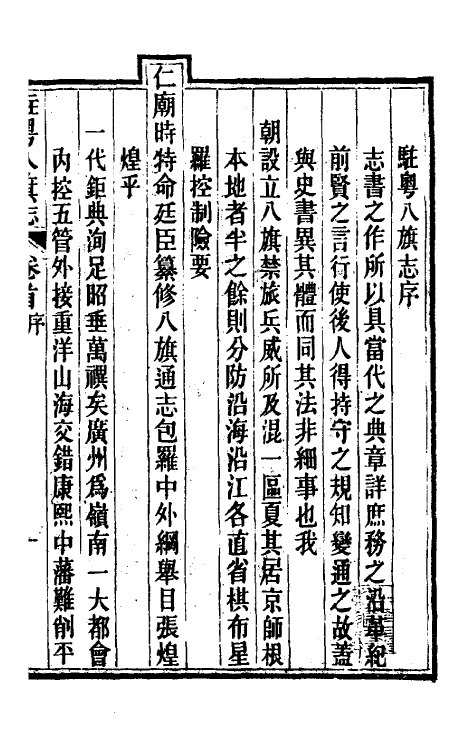 駐粵八旗志序
志書之作所以具當代之典章詳庶務之沿革紀
前賢之言行使後人得持守之規知變通之故蓋
與史書異其體而同其法非細事也我
朝設立八旗禁旅兵威所及混一區夏其居京師根
本地者半之餘則分防沿海沿江各直省棋布星
羅控制險要
仁廟時特命廷臣纂修八旗通志包羅中外綱舉目張煌
煌乎
一代鉅典洵足昭垂萬禩矣廣州爲嶺南一大都會
內控五管外接重洋山海交錯康熙中藩難削平
駐粵八旗志
卷首序
一